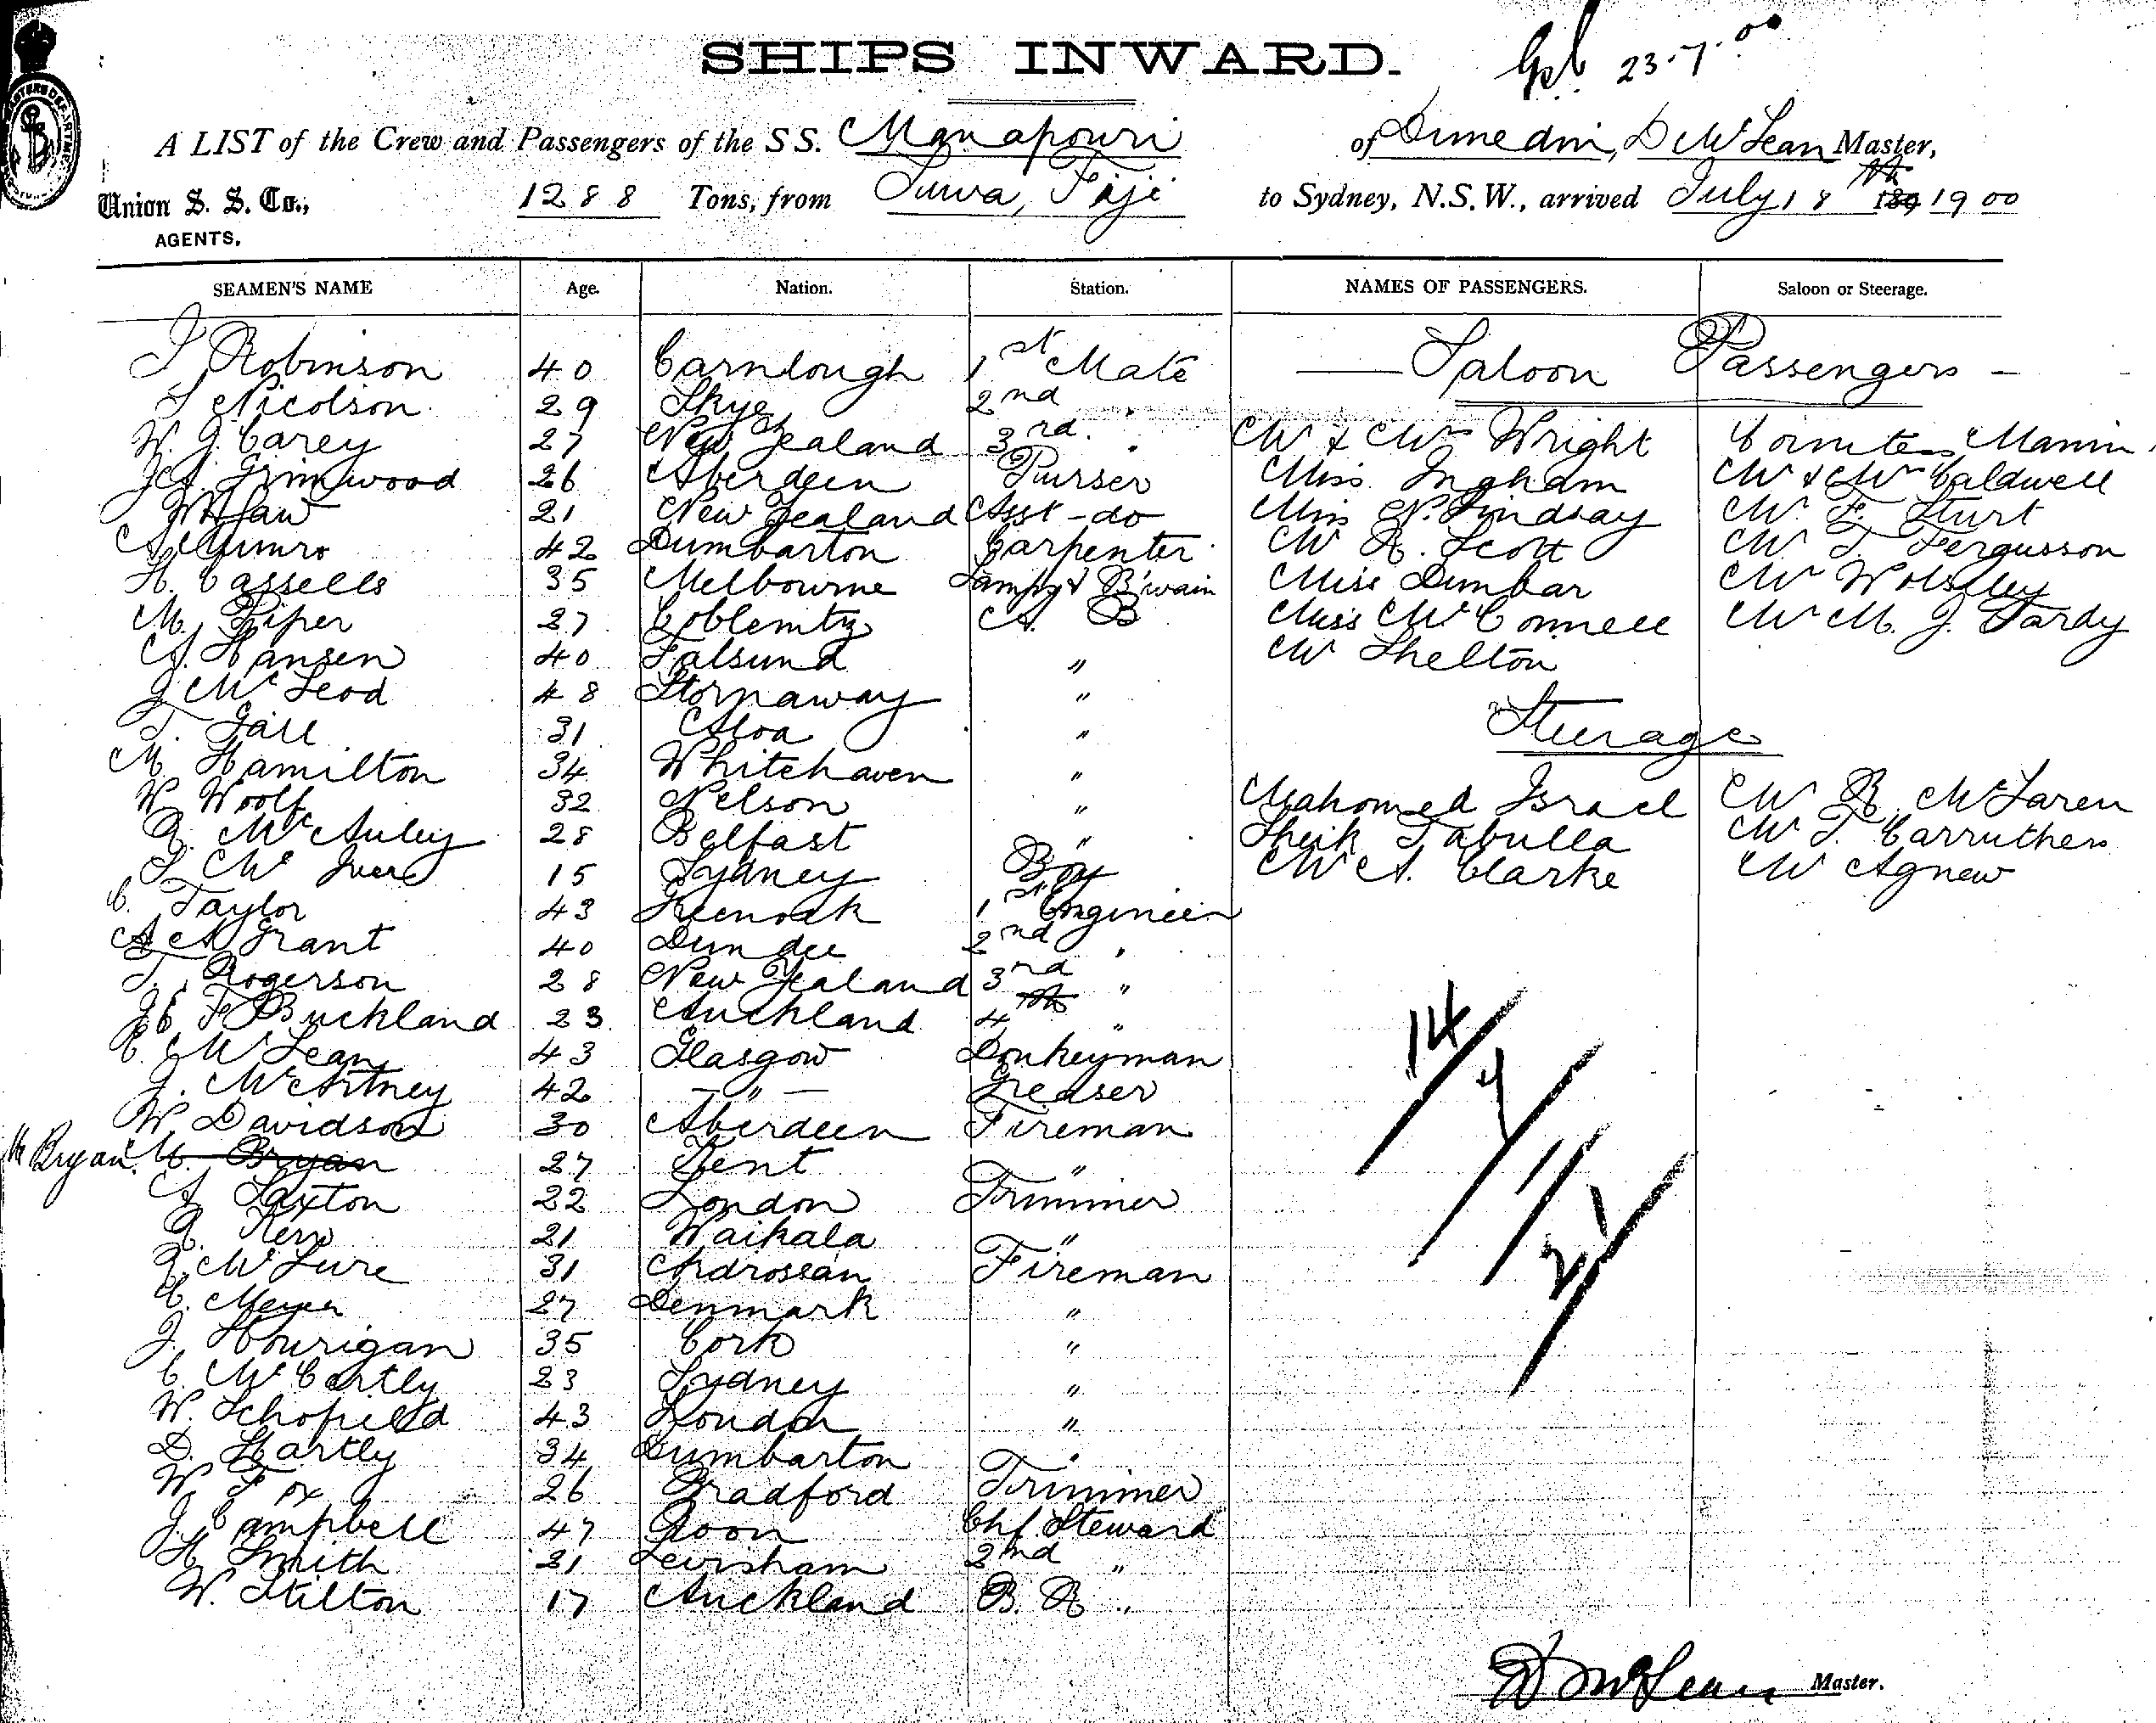 SHIPS INWARD.
23-7-00
A LIST of the Crew and Passengers of the S S. Manapouri of Dunedin, D McLean Master,
Union S. S. Co., 1288 Tons, from Suva, Fiji to Sydney, N.S.W., arrived July 18th 189 1900
AGENTS,
SEAMEN'S NAME Age. Nation. Station. NAMES OF PASSENGERS. Saloon or Steerage.
Robinson 40 Carnlough 1st Mate Saloon Passengers
Nicolson 29 Skye 2nd "
W. J. Carey 27 New Zealand 3rd. " Mr & Mrs Wright Comites Mamin
Grimwood 26 Aberdeen Purser Miss Ingham Mr & Mrs Caldwell
Law 21 New Zealand Asst - do Miss N. Lindsay Mr. F. Sturt
A. Munro 42 Dumbarton Carpenter Mr R. Scott Mr. T. Fergusson
H. Cassells 35 Melbourne Lamps & B'swain Miss Dunbar Mr Wolseley
M. Piper 27 Coblentz A. B Miss McConnell Mr M. J. Tardy
A. Hansen 40 Falsund " Mr Shelton
J McLeod 48 Stornaway "
T. Gall 31 Aloa " Steerage
M Hamilton 34 Whitehaven "
W Woolf 32 Nelson " Mahomed Israel Mr R. McLaren
R. McAuley 28 Belfast " Sheik Tabulla Mr T. Carruthers
15 Sydney Boy Mr A. Clarke Mr Agnew
C. Taylor 43 Greenock 1st Engineer
A A Grant 40 Dundee 2nd "
T. Rogerson 28 New Zealand 3rd "
F Buckland 23 Auckland 4th "
C. McLean 43 Glasgow Donkeyman
J. McArtney 42 - " - Greaser
W. Davidson 30 Aberdeen Fireman
M Bryan. M. Bryan 27 Kent "
A Saxton 22 London Trimmer
R. Kerr 21 Waikala "
McLure 31 Ardrossan Fireman
C. Meyer 27 Denmark "
J. Hourigan 35 Cork "
C. McCartly 23 Sydney "
W. Schofield 43 London "
D. Hartly 34 Dumbarton "
W Fox 26 Bradford Trimmer
J. Campbell 47 Goon Chf Steward
H. Smith 21 Lewisham 2nd "
W. Stilton 17 Auckland B. R "
14/
4/
1/
2/
D McLean Master.